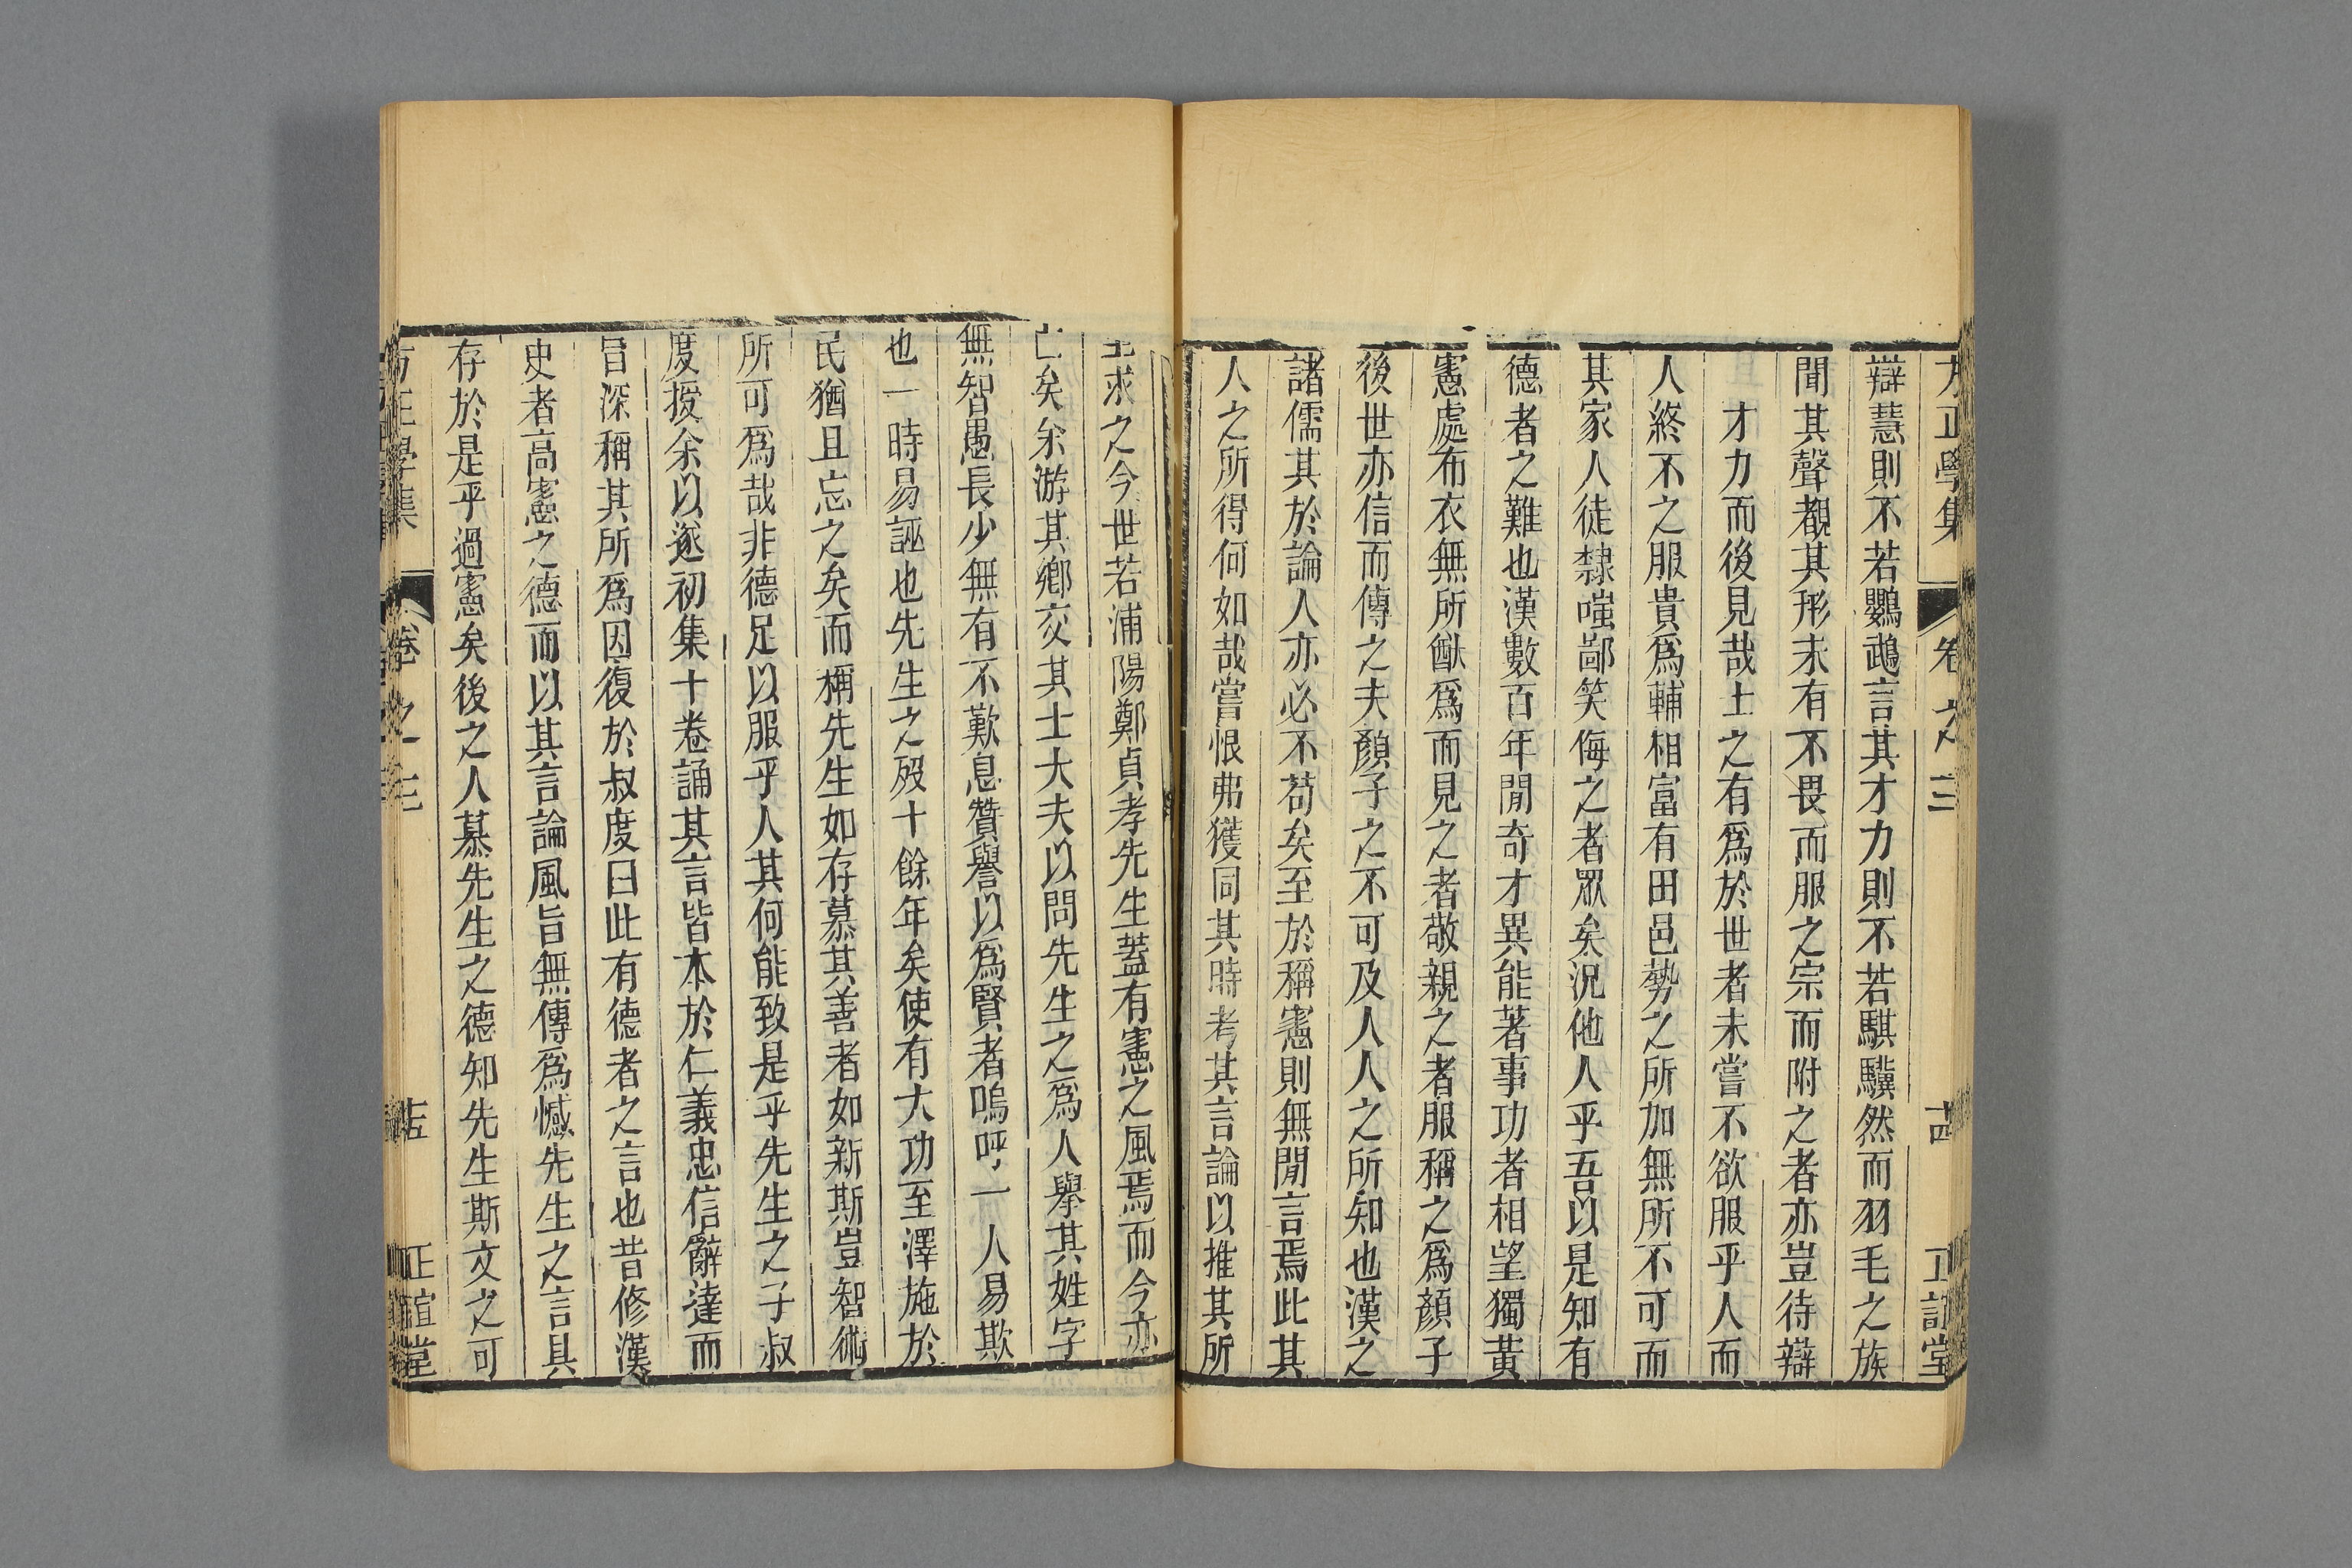 方正學集 卷之三 十四 正誼堂
辯慧則不若鸚鵡言其才力則不若騏驥然而羽毛之族
聞其聲覩其形未有不畏而服之宗而附之者亦豈待辯
才力而後見哉士之有爲於世者未嘗不欲服乎人而
人終不之服貴爲輔相富有田邑勢之所加無所不可而
其家人徒隸嗤鄙笑侮之者眾矣況他人乎吾以是知有
德者之難也漢數百年閒奇才異能著事功者相望獨黃
憲處布衣無所猷爲而見之者敬親之者服稱之爲顏子
後世亦信而傳之夫顏子之不可及人人之所知也漢之
諸儒其於論人亦必不苟矣至於稱憲則無閒言焉此其
人之所得何如哉嘗恨弗獲同其時考其言論以推其所
至求之今世若浦陽鄭貞孝先生蓋有憲之風焉而今亦
亡矣余游其鄉交其士大夫以問先生之爲人舉其姓字
無智愚長少無有不歎息贊譽以爲賢者嗚呼一人易欺
也一時易誣也先生之歿十餘年矣使有大功至澤施於
民猶且忘之矣而稱先生如存慕其善者如新斯豈智術
所可爲哉非德足以服乎人其何能致是乎先生之子叔
度授余以遂初集十卷誦其言皆本於仁義忠信辭達而
旨深稱其所爲因復於叔度曰此有德者之言也昔修漢
史者高憲之德而以其言論風旨無傳爲憾先生之言具
存於是乎過憲矣後之人慕先生之德知先生斯文之可
方正學集 卷之三 十五 正誼堂